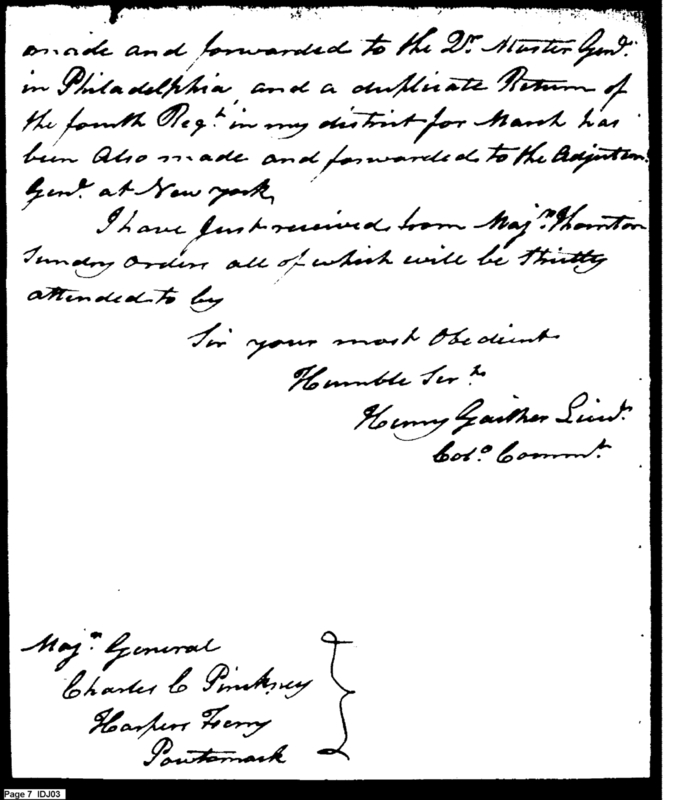 made and forwarded to the Qr. Master Genl.
in Philadelphia, and a duplicate Return of
the fourth Regt. in my district for March has
been also made and forwarded to the Adjutant
Genl. at New york,
I have Just received from Majr. Thornton
Sundry orders all of which will be Strictly
attended to by
Sir your most Obedient
Humble Servt.
Henry Gaither Lieut.
Colo. Commt.
Majr. General
Charles C Pinckney
Harpers Ferry
Powtomack
Page 7 IDJ03